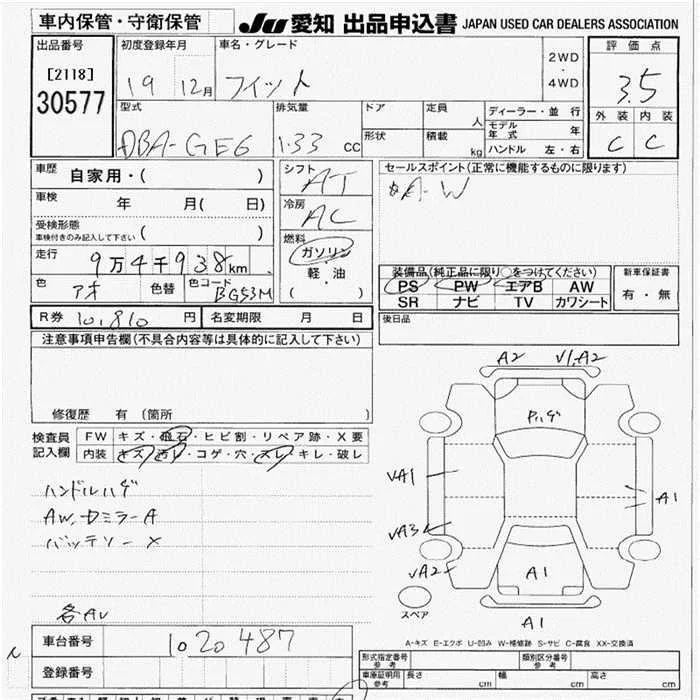 車内保管・守衛保管 JU 愛知 出品申込書 JAPAN USED CAR DEALERS ASSOCIATION
出品番号 初度登録年月 車名・グレード 2WD・4WD 評価点
[2118]
30577 19 12月 フィット 3.5
型式 排気量 ドア 定員 人 ディーラー・並行 外装 内装
モデル年式 年
DBA-GE6 1.33 cc 形状 積載 kg ハンドル 左・右 C C
車歴 自家用・( ) シフト AT セールスポイント(正常に機能するものに限ります)
車検 年 月( 日) 冷房 AC
受検形態
車検付きのみ記入して下さい ( ) 燃料 ガソリン
走行 9万4千938km 軽・油 装備品(純正品に限り○をつけてください) 新車保証書
色 アオ 色替 色コード BG53M ( ) PS PW エアB AW 有・無
SR ナビ TV カワシート
R券 10,810円 名変期限 月 日 後日品
注意事項申告欄(不具合内容等は具体的に記入して下さい)
修復歴 有 〔箇所 〕
検査員 FW キズ・飛石・ヒビ割・リペア跡・X要
記入欄 内装 キズ・汚レ・コゲ・穴・スレ・キレ・破レ
A2 V1,A2
Pハゲ
ハンドルハゲ VA1 A1
AW,ドミラーA VA3
バッテリーX VA2 A1
各AU スペア A1
A-キズ E-エクボ U-凹み W-補修跡 S-サビ C-腐食 XX-交換済
車台番号 1020487 型式指定番号 参考 類別区分番号 参考
登録番号 車庫証明用 参考 長さ cm 幅 cm 高さ cm